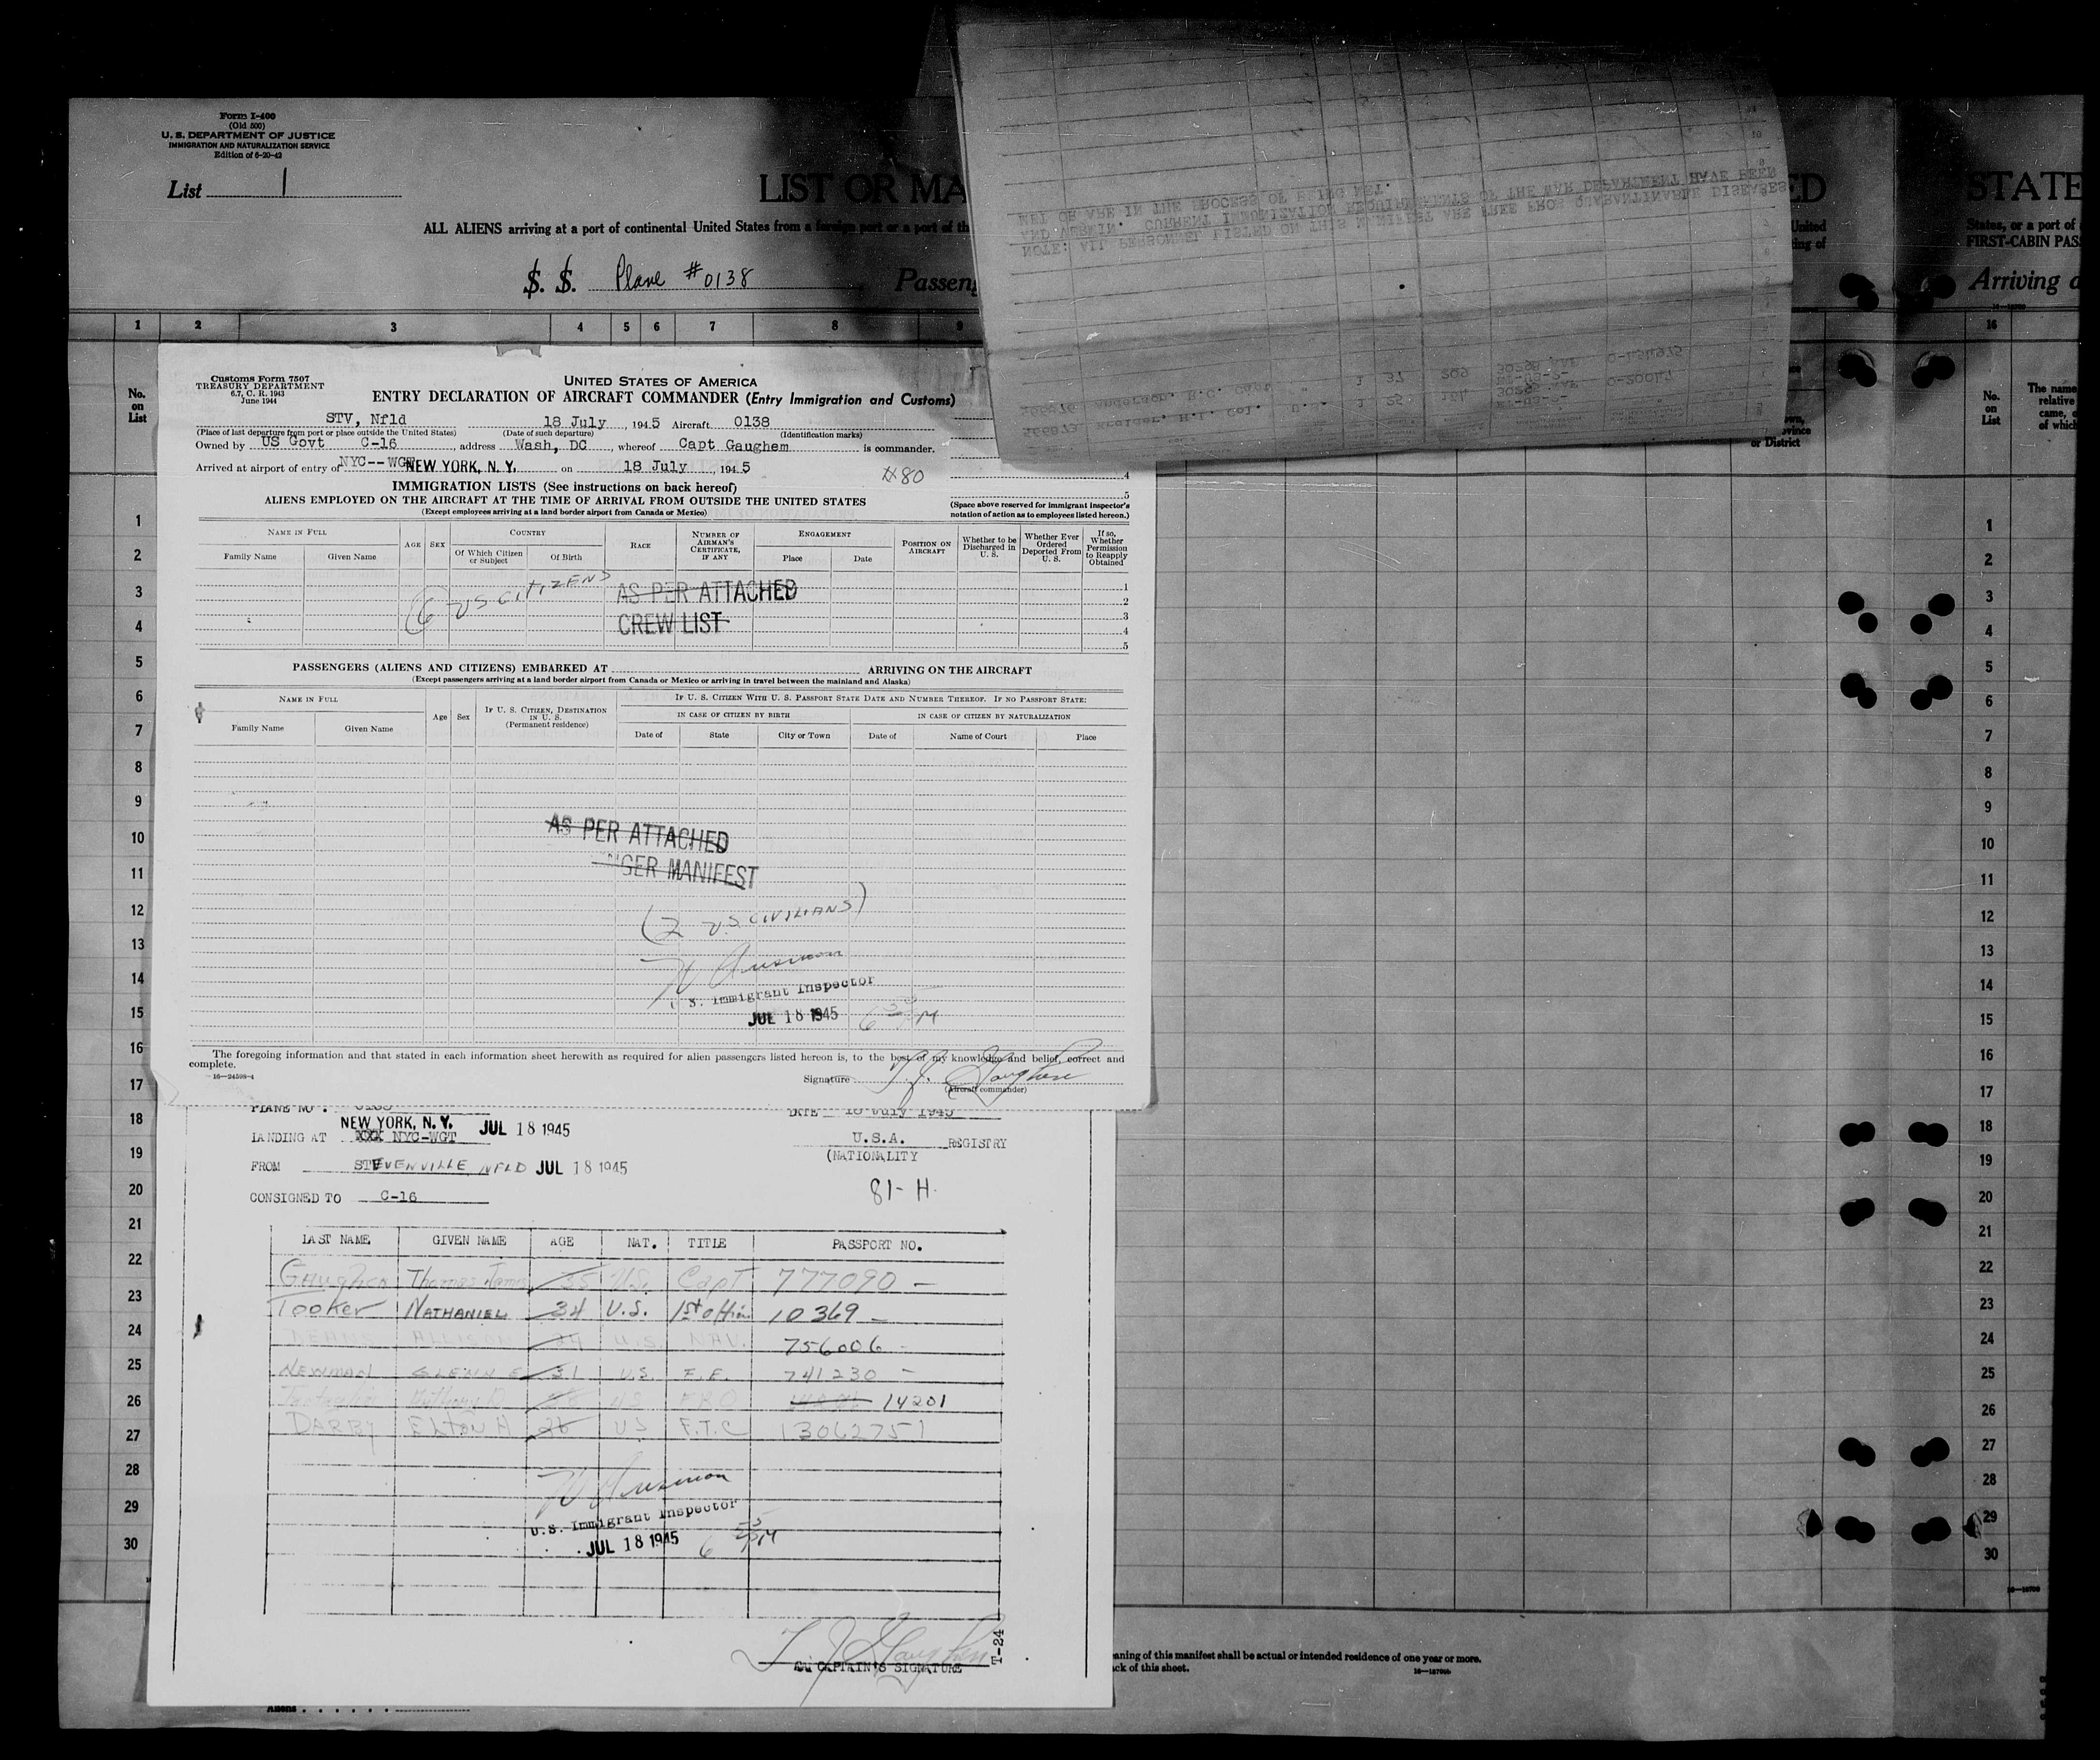 Form I-400
(Old 500)
U. S. DEPARTMENT OF JUSTICE
IMMIGRATION AND NATURALIZATION SERVICE
Edition of 6-20-42
List 1
LIST OR MA
ED
STATE
ALL ALIENS arriving at a port of continental United States from a foreign port or a port of th
United
States, or a port of
ing of
FIRST-CABIN PAS
S. S. Plane #0138 Passeng
Arriving a
NOTE: ALL PERSONNEL LISTED ON THIS MANIFEST ARE FREE FROM QUARANTINABLE DISEASES
AND VERMIN. CURRENT IMMUNIZATION REQUIREMENTS OF THE WAR DEPARTMENT HAVE BEEN
MET OR ARE IN THE PROCESS OF BEING MET.
Anderson, B.C. Capt " 1 37 209
H.L. Col. U.S. 1
1 2 3 4 5 6 7 8 9
16
No. on List
No. on List
The name
relative
came,
of which
or District
Customs Form 7507
TREASURY DEPARTMENT
6.7, C. R. 1943
June 1944
UNITED STATES OF AMERICA
ENTRY DECLARATION OF AIRCRAFT COMMANDER (Entry Immigration and Customs)
STV, Nfld 18 July, 1945 Aircraft 0138
(Place of last departure from port or place outside the United States) (Date of such departure) (Identification marks)
Owned by US Govt C-16, address Wash, DC, whereof Capt Gaughem is commander.
Arrived at airport of entry of NYC--WGT NEW YORK, N. Y. on 18 July, 1945
#80
IMMIGRATION LISTS (See instructions on back hereof)
ALIENS EMPLOYED ON THE AIRCRAFT AT THE TIME OF ARRIVAL FROM OUTSIDE THE UNITED STATES
(Except employees arriving at a land border airport from Canada or Mexico)
4
5
(Space above reserved for immigrant inspector's
notation of action as to employees listed hereon.)
NAME IN FULL
Family Name Given Name
AGE SEX
COUNTRY
Of Which Citizen or Subject Of Birth
RACE
NUMBER OF AIRMAN'S CERTIFICATE, IF ANY
ENGAGEMENT
Place Date
POSITION ON AIRCRAFT
Whether to be Discharged in U. S.
Whether Ever Ordered Deported From U. S.
If so, Whether Permission to Reapply Obtained
6 US CITIZENS
AS PER ATTACHED
CREW LIST
1
2
3
4
5
PASSENGERS (ALIENS AND CITIZENS) EMBARKED AT ARRIVING ON THE AIRCRAFT
(Except passengers arriving at a land border airport from Canada or Mexico or arriving in travel between the mainland and Alaska)
NAME IN FULL
Family Name Given Name
Age Sex
IF U. S. CITIZEN, DESTINATION IN U. S. (Permanent residence)
IF U. S. CITIZEN WITH U. S. PASSPORT STATE DATE AND NUMBER THEREOF. IF NO PASSPORT STATE:
IN CASE OF CITIZEN BY BIRTH IN CASE OF CITIZEN BY NATURALIZATION
Date of State City or Town Date of Name of Court Place
AS PER ATTACHED
NGER MANIFEST
(2 US CIVILIANS)
S. Immigrant Inspector
JUL 18 1945
The foregoing information and that stated in each information sheet herewith as required for alien passengers listed hereon is, to the best of my knowledge and belief, correct and
complete.
16—24598-4
Signature T. J. Gaughen
(Aircraft commander)
PLANE NO. 0138 DATE 18 July 1945
LANDING AT XXX NYC-WGT NEW YORK, N. Y. JUL 18 1945
U.S.A. REGISTRY
(NATIONALITY
FROM STEVENVILLE NFLD JUL 18 1945
CONSIGNED TO C-16
81-H
LAST NAME GIVEN NAME AGE NAT. TITLE PASSPORT NO.
Gaughen Thomas James 35 U.S. Capt 777090 —
Tooker NATHANIEL 34 U.S. 1st offic 10369 —
DEANS ALLISON U.S. NAV. 756006 -
NEWMAN GLENN E 31 U.S. F.E. 741230 -
U.S. FRO 14201
DARBY ELTON H 26 US F.T.C 13062751
U.S. Immigrant Inspector
JUL 18 1945
T J Gaughen
CAPTAIN'S SIGNATURE
T-24
1
2
3
4
5
6
7
8
9
10
11
12
13
14
15
16
17
18
19
20
21
22
23
24
25
26
27
28
29
30
1
2
3
4
5
6
7
8
9
10
11
12
13
14
15
16
17
18
19
20
21
22
23
24
25
26
27
28
29
30
aning of this manifest shall be actual or intended residence of one year or more.
ck of this sheet.
Aliens